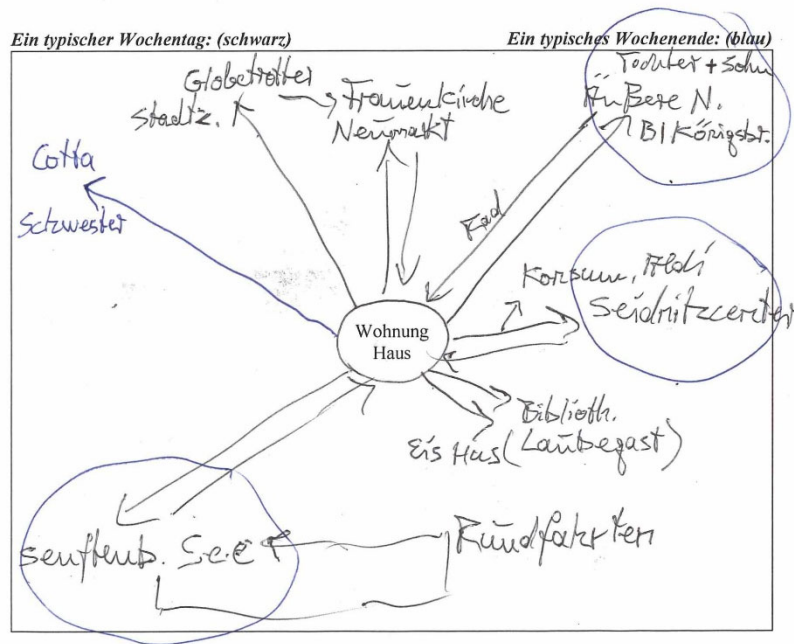 Ein typischer Wochentag: (schwarz)
Ein typisches Wochenende: (blau)
Globetrotter
Stadtz.
Frauenkirche
Neumarkt
Tochter + Sohn
Äußere N.
Cotta
Schwester
Rad
Konsum, Aldi
Seidnitzcenter
Wohnung
Haus
Biblioth.
Eis Haus (Laubegast)
Senftenb. See
Rundfahrten